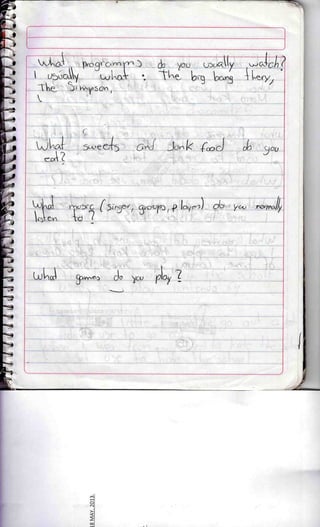 What programms do you usually watch?
I usually what : The big bang thery,
The Simpson,
What sweets and Jonk food do you
eat?
What music (singer, groups, players) do you normally
listen to ?
What games do you play ?
18 MAY. 2013.